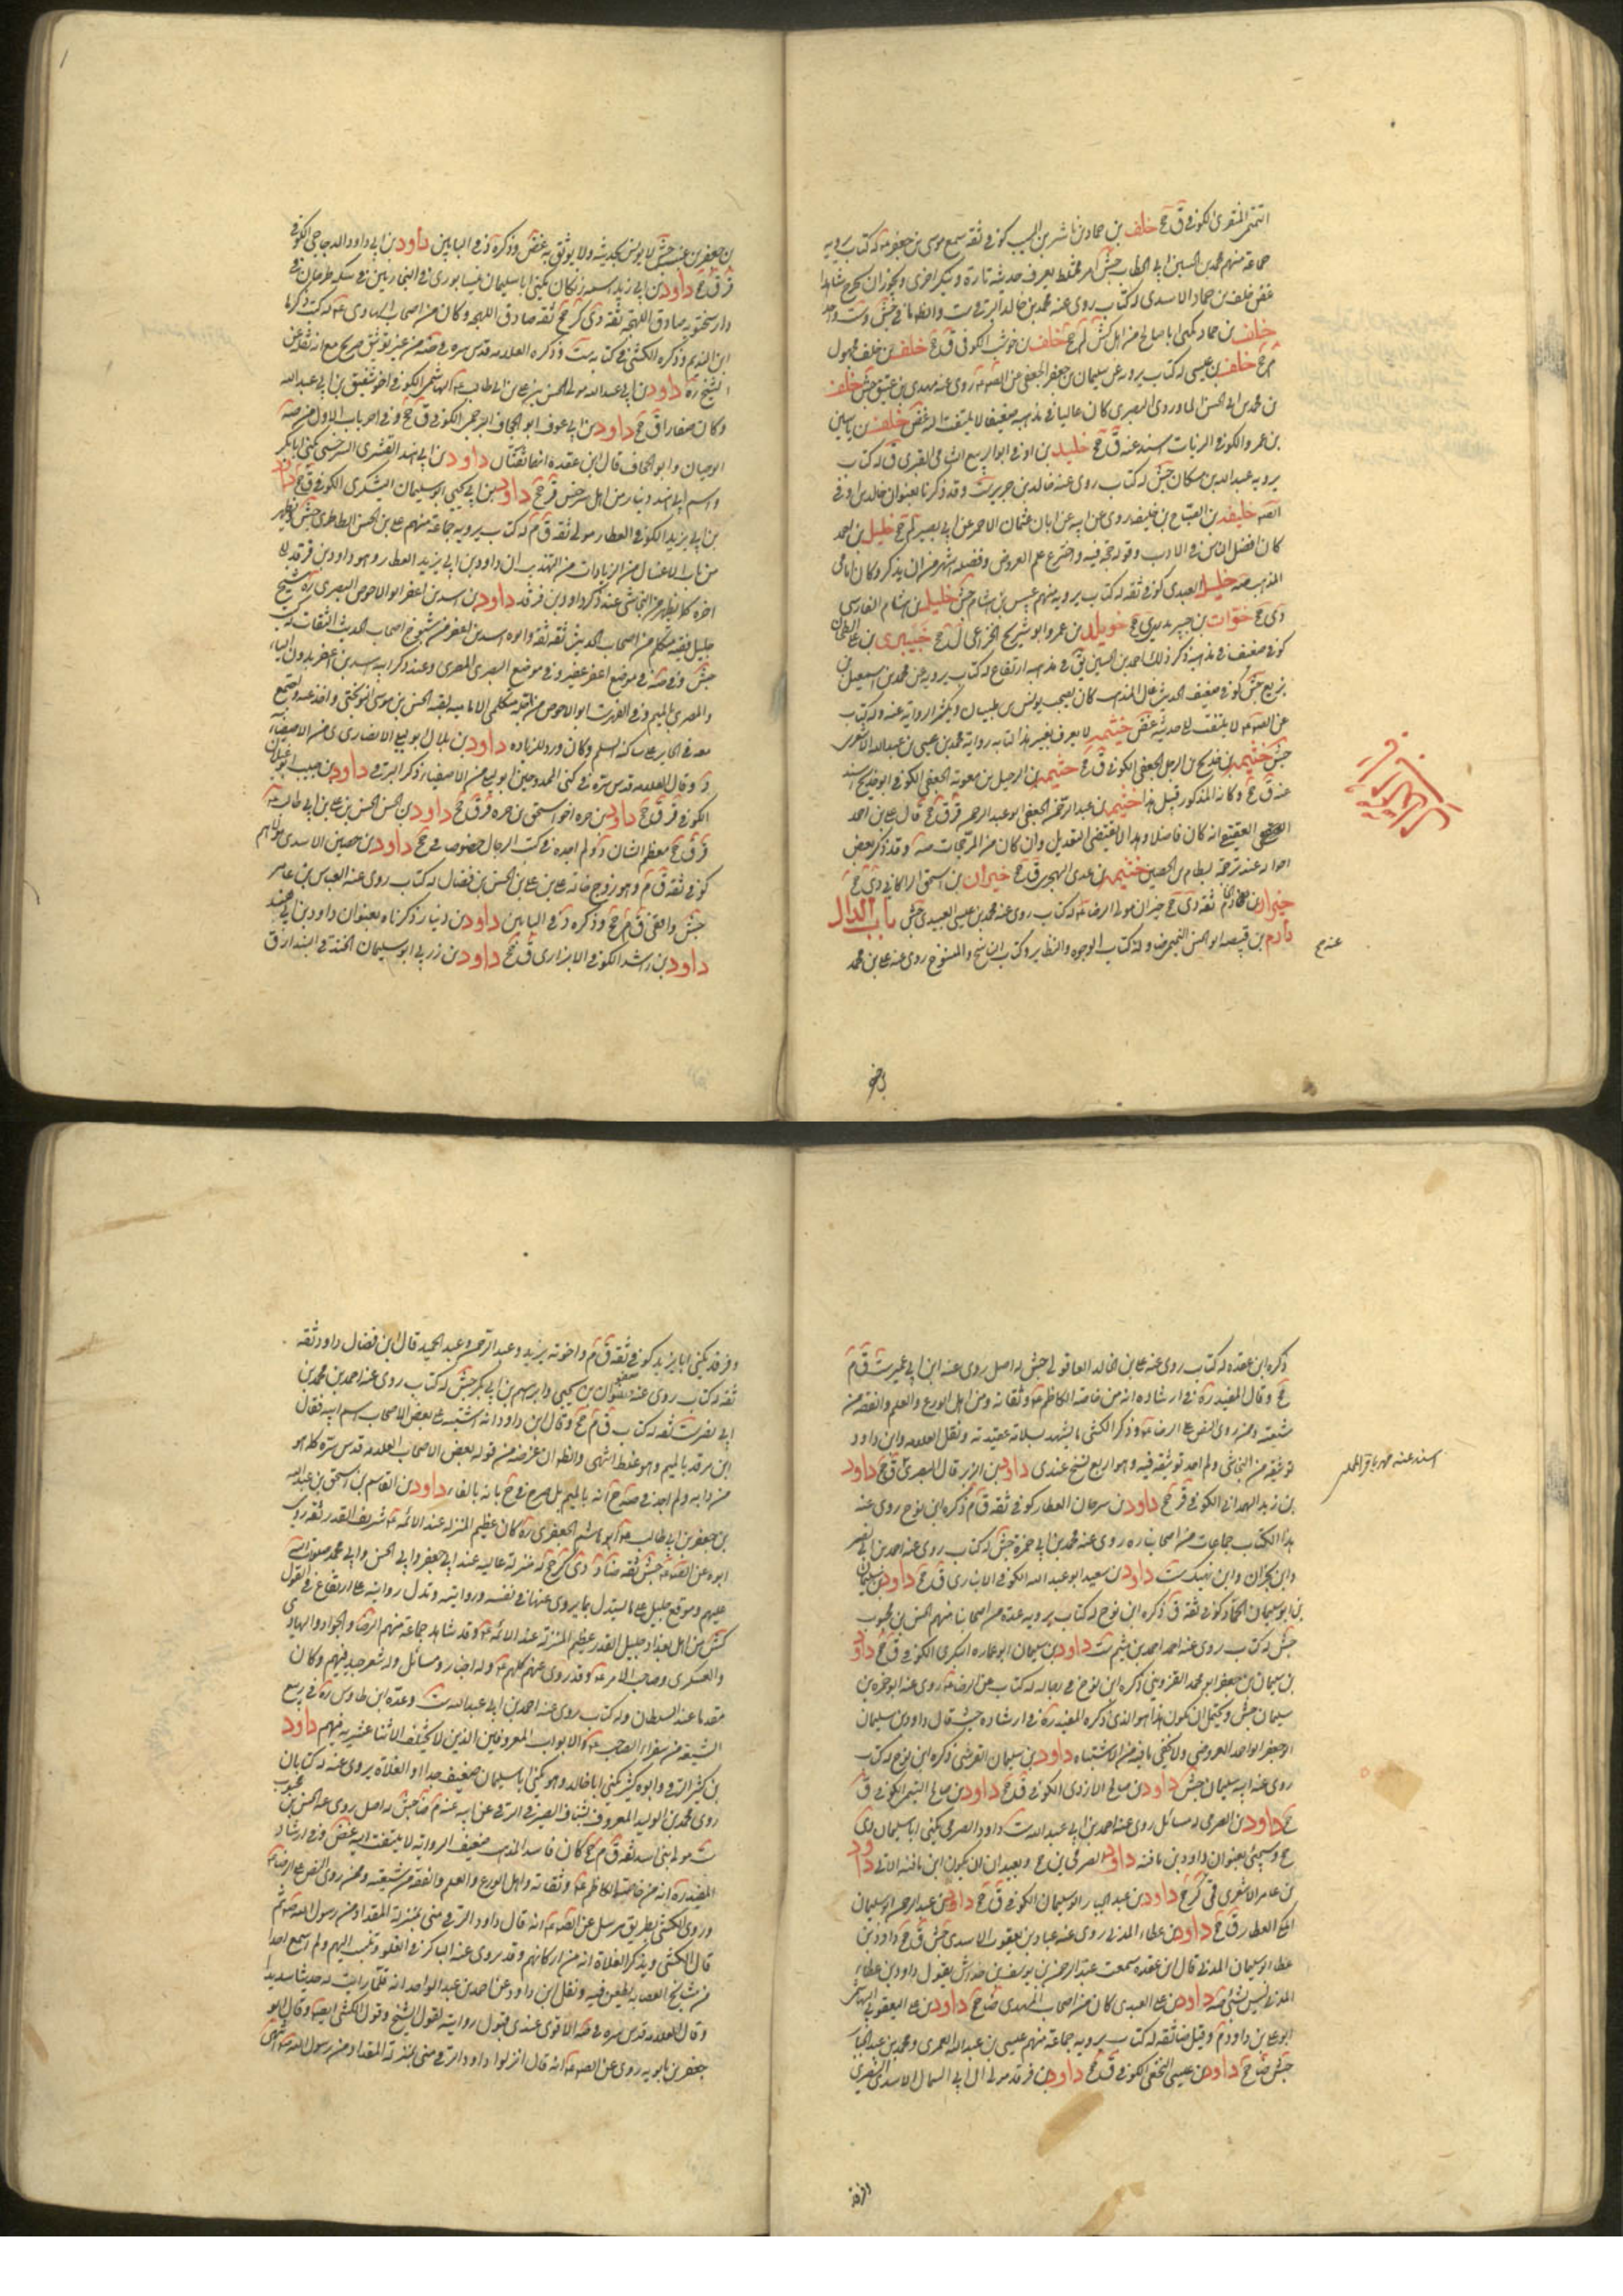 التيمي المنقري الكوفي ق جخ خلف بن حماد بن ناشر بن المسيب كوفي ثقة سمع موسى بن جعفر ع له كتاب يرويه
جماعة منهم محمد بن الحسين بن ابي الخطاب جش امره مختلط يعرف حديثه تارة وينكر اخرى ويجوز ان يخرج شاهدا
غض خلف بن حماد الاسدي له كتاب روى عنه محمد بن خالد البرقي ست والظ
خلف بن حماد يكنى ابا صالح من اهل كش لم جخ خلف بن حوشب الكوفي ق جخ خلف بن خلف مجهول
م جخ خلف بن عيسى له كتاب يرويه عن سليمان بن جعفر الجعفري روى عنه مهدي بن عتيق جش خلف
بن محمد بن ابي الحسن الماوردي البصري كان غاليا في مذهبه ضعيفا لا يلتفت اليه غض خلف بن ياسين
بن عمرو الكوفي الزيات اسند عنه ق جخ خليد بن اوفى ابو الربيع الشامي العنزي ق له كتاب
يرويه عبد الله بن مسكان جش له كتاب روى عنه خالد بن جرير ست وقد ذكرنا بعنوان خالد بن اوفى
خليفة بن الصباح بن خليفة روى عن ابيه عن ابان بن عثمان الاحمر عن ابي بصير لم جخ خليل بن احمد
كان افضل الناس في الادب وقوله حجة فيه واخترع علم العروض وفضله اشهر من ان يذكر وكان امامي
المذهب صه خليل العبدي كوفي ثقة له كتاب يرويه منهم عبيس بن هشام جش خليل بن هشام الفارسي
دي جخ خوات بن جبير بدري ي جخ خويلد بن عمرو ابو شريح الخزاعي ل جخ خيبري بن علي الطحان
كوفي ضعيف في مذهبه ذكر ذلك احمد بن الحسين يق في مذهبه ارتفاع له كتاب يرويه عن محمد بن اسمعيل بن
بزيع جش كوفي ضعيف الحديث غال المذهب كان يصحب يونس بن ظبيان ويكثر الرواية عنه وله كتاب
عن ابي عبد الله لا يلتفت الى حديثه غض خيثمة لا يعرف بغير هذا
جش خيثمة بن خديج بن الرحيل الجعفي الكوفي ق جخ خيثمة بن الرحيل بن معوية الجعفي الكوفي ابو خديج اسند
عنه ق جخ وكانه المذكور قبيل هذا خيثمة بن عبد الرحمن الجعفي ابو عبد الرحمن قر ق جخ قال علي بن احمد
العقيقي انه كان فاضلا وهذا لا يقتضي التعديل وان كان من المرجحات صه وقد ذكر بعض
احواله عند ترجمة بسطام بن الحصين خيثمة بن عدي الهجري ق جخ خيران بن اسحق الراكاني دي جخ
خيران الخادم ثقة دي جخ خيران مولى الرضا ع له كتاب روى عنه محمد بن عيسى العبيدي جش باب الدال
دارم بن قبيصة ابو الحسن التميمي ضا وله كتاب الوجوه والنظاير وكتاب الناسخ والمنسوخ روى عنه علي بن محمد
عنه جخ
بن جعفر بن عنبسة جش لا يونس بحديثه ولا يوثق به غض وذكره د في البابين داود بن ابي داود الدجاجي الكوفي
قر ق جخ داود بن ابي زيد اسمه زنكان يكنى ابا سليمان نيسابوري في النجارين في سكة طرخان في
دار سختويه صادق اللهجة ثقة دي كر جخ ثقة صادق اللهجة وكان من اصحاب الهادي ع له كتب ذكرها
ابن النديم وذكره الكشي في كتابه ست وذكره العلامة قدس سره في صه من غير توثيق صريح مع انه نقله عن
الشيخ ره داود بن ابي عبد الله مولى الحسن بن علي بن ابي طالب ع الهاشمي الكوفي اخو شقيق بن ابي عبد الله
وكان صفارا ق جخ داود بن ابي عوف ابو الجحاف البرجمي الكوفي ق جخ وفي اخر باب الاول من صه
ابو حيان وابو الجحاف قال ابن عقدة انهما ثقتان داود بن ابي هند القشيري السرخسي يكنى ابا بكر
واسم ابي هند دينار من اهل سرخس قر جخ داود بن ابي يحيى ابو سليمان اليشكري الكوفي ق جخ داود
بن ابي يزيد الكوفي العطار مولى ثقة ق م له كتاب يرويه جماعة منهم علي بن الحسن الطاطري جش ويظهر
من باب الاغسال من الزيادات من التهذيب ان داود بن ابي يزيد العطار وهو داود بن فرقد الى
اخره كما يظهر من النجاشي عند ذكر داود بن فرقد داود بن اسد بن اعفر ابو الاحوص البصري ره شيخ
جليل فقيه متكلم من اصحاب الحديث ثقة ثقة وابوه اسد بن اعفر من شيوخ اصحاب الحديث الثقات له كتب
جش وفي صه في موضع اعفر عفير وفي موضع البصري المصري وعند ذكر ابيه اسد بن اعفر بدون الياء
والمصري بالميم وفي الفهرست ابو الاحوص من جلة متكلمي الامامية لقيه الحسن بن موسى النوبختي واخذ عنه واجتمع
معه في الحاير على ساكنه السلم وكان ورد للزيارة داود بن بلال ابو ليلى الانصاري ي من الاصفياء
د وقال العلامة قدس سره في كنى الممدوحين ابو ليلى من الاصفياء ذكره البرقي داود بن حبيب ابو غيلان
الكوفي قر ق جخ داود بن حرة اخو اسحق بن حره قر ق جخ داود بن الحسن بن الحسن بن علي بن ابي طالب ع
قر ق جخ معظم الشان د ولم اجده في كتب الرجال خصوصا في جخ داود بن حصين الاسدي مولاهم
كوفي ثقة ق م وهو زوج خالة علي بن الحسن بن فضال له كتاب روى عنه العباس بن عامر
جش واقفي ق م جخ وذكره د في البابين داود بن دينار ذكرناه بعنوان داود بن ابي هند
داود بن راشد الكوفي الابزاري ق جخ داود بن زربي ابو سليمان الخندقي البندار ق
ذكره ابن عقدة له كتاب روى عنه علي بن خالد العاقولي جش له اصل روى عنه ابن ابي عمير ست ق م
جخ وقال المفيد ره في ارشاده انه من خاصة الكاظم ع وثقاته ومن اهل الورع والعلم والفقه من
شيعته وممن روى النص على الرضا ع وذكر الكشي ما يشهد بسلامة عقيدته ونقل العلامة وابن داود
توثيقه من النجاشي ولم اجد توثيقه فيه وهو اربع نسخ عندي داود بن الزبرقان البصري ق جخ داود
بن زيد الهمداني الكوفي ق جخ داود بن سرحان العطار كوفي ثقة ق م ذكره ابن نوح روى عنه
هذا الكتاب جماعات من اصحابنا ره روى عنه محمد بن ابي حمزة جش له كتاب روى عنه احمد بن ابي نصر
وابن نجران وابن نهيك ست داود بن سعيد ابو عبد الله الكوفي الانباري ق جخ داود بن سليمان
بن ابو سليمان الحمار كوفي ثقة ق ذكره ابن نوح له كتاب يرويه عدة من اصحابنا منهم الحسن بن محبوب
جش له كتاب روى عنه احمد بن ميثم ست داود بن سليمان ابو عمارة البكري الكوفي ق جخ داود
بن سليمان بن جعفر ابو احمد القزويني ذكره ابن نوح في رجاله له كتاب عن الرضا ع روى عنه ابو حمزة بن
سليمان جش ويحتمل ان يكون هذا هو الذي ذكره المفيد ره في ارشاده حيث قال داود بن سليمان
ولا يخفى ما فيه من الاشتباه داود بن سليمان القرشي ذكره ابن نوح له كتاب
روى عنه ابنه سليمان جش داود بن صالح الازدي الكوفي ق جخ داود بن صالح التيمي الكوفي ق
جخ داود بن الصرمي له مسائل روى عنه احمد بن ابي عبد الله ست داود الصرمي يكنى ابا سليمان دي
جخ وسيجيء بعنوان داود بن مافنه داود الصرمي دي جخ وبعيد ان لا يكون ابن مافنه الاتي داود
بن عامر الاشعري قمي كر جخ داود بن عبد الجبار ابو سليمان الكوفي ق جخ داود بن عبد الرحمن ابو سليمان
المكي العطار ق جخ داود بن عطاء المدني روى عنه عباد بن يعقوب الاسدي جش ق جخ داود بن
عطاء ابو سليمان المدني قال ابن عقدة سمعت عبد الرحمن بن يوسف بن خراش يقول داود بن عطاء
المدني ليس بشيء صه داود بن علي العبدي كان من اصحاب المهدي ضا جخ داود بن علي اليعقوبي الهاشمي
ابو علي بن داود م وقيل ضا ثقة له كتاب يرويه جماعة منهم عيسى بن عبد الله العمري ومحمد بن عبد الجبار
جش ضا جخ داود بن عيسى النخعي الكوفي ق جخ داود بن فرقد مولى آل ابي السمال الاسدي النصري
اسند عنه محمد باقر المجلسي
وفرقد يكنى ابا يزيد كوفي ثقة ق م واخوته يزيد وعبد الرحمن وعبد الحميد قال ابن فضال داود ثقة
ثقة له كتاب روى عنه صفوان بن يحيى وابراهيم بن ابي بكر جش له كتاب روى عنه احمد بن محمد بن
ابي نصر ست ثقة له كتاب ق م جخ وقال ابن داود انه اشتبه على بعض الاصحاب اسم ابيه فقال
ابن مرقد بالميم وهو غلط انتهى والظ ان غرضه من قوله بعض الاصحاب العلامة قدس سره كما هو
من دابه ولم اجد في صه ح انه بالميم بل صرح في ح بانه بالفاء داود بن القاسم بن اسحق بن عبد الله
بن جعفر بن ابي طالب ع ابو هاشم الجعفري ره كان عظيم المنزلة عند الائمة ع شريف القدر ثقة روى
ابوه عن الصادق ع جش ثقة ضا د دي كر جخ له منزلة عالية عند ابي جعفر وابي الحسن وابي محمد صلوات الله
عليهم وموقع جليل على ما يستدل بما يروى عنهما في نفسه وروايته وتدل روايته على ارتفاع في القول
كش من اهل بغداد جليل القدر عظيم المنزلة عند الائمة ع وقد شاهد جماعة منهم الرضا والجواد والهادي
والعسكري وصاحب الامر ع وقد روى عنهم كلهم ع وله اخبار ومسائل وله شعر جيد فيهم وكان
مقدما عند السلطان وله كتاب روى عنه احمد بن ابي عبد الله ست وعده ابن طاوس ره في ربيع
الشيعة من سفراء الصاحب ع والابواب المعروفين الذين لا يختلف الاثنا عشرية فيهم داود
بن كثير الرقي وابوه كثير يكنى ابا خالد وهو يكنى ابا سليمان ضعيف جدا والغلاة يروى عنه له كتابان
روى محمد بن الوليد المعروف بشباب الصيرفي الرقي عن ابيه عنه م ضا جش له اصل روى عنه الحسن بن محبوب
ست مولى بني اسد ثقة ق م جخ كان فاسد المذهب ضعيف الرواية لا يلتفت اليه غض وفي ارشاد
المفيد ره انه من خاصة الكاظم ع وثقاته واهل الورع والعلم والفقه من شيعته وممن روى النص على الرضا ع
وروى الكشي بطريق مرسل عن الصادق ع انه قال داود الرقي مني بمنزلة المقداد من رسول الله ص ثم
قال الكشي ويذكر الغلاة انه من اركانهم وقد يروى عنه المناكير في الغلو وتنسب اليهم ولم اسمع احدا
من مشايخ العصابة يطعن فيه ونقل ابن داود عن احمد بن عبد الواحد انه قلما رايت له حديثا سديدا
وقال العلامة قدس سره في صه الاقوى عندي قبول روايته لقول الشيخ وقول الكشي ايضا وقال ابو
جعفر بن بابويه روى عن الصادق ع انه قال انزلوا داود الرقي مني بمنزلة المقداد من رسول الله ص انتهى